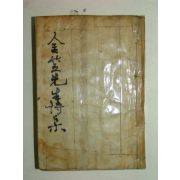 金笠先生詩集